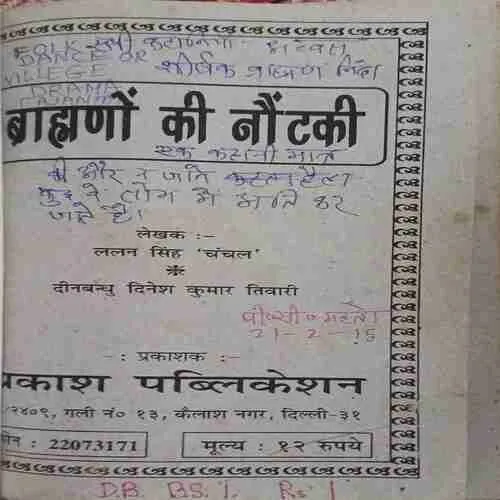 FOLK
DANCE OR
VILLEGE
DRAMA
शीर्षक ब्राह्मण निंदा
ब्राह्मणों की नौंटकी
एक कहानी मात्र
की और न जाति
लोग में भ्रांति कर
जाते हैं।
लेखक :-
ललन सिंह 'चंचल'
दीनबन्धु दिनेश कुमार तिवारी
21-2-15
-: प्रकाशक :-
प्रकाश पब्लिकेशन
२४०९, गली नं० १३, कैलाश नगर, दिल्ली-३१
फोन : 22073171
मूल्य : १२ रुपये
D.B. BS. 1. Rs. 1